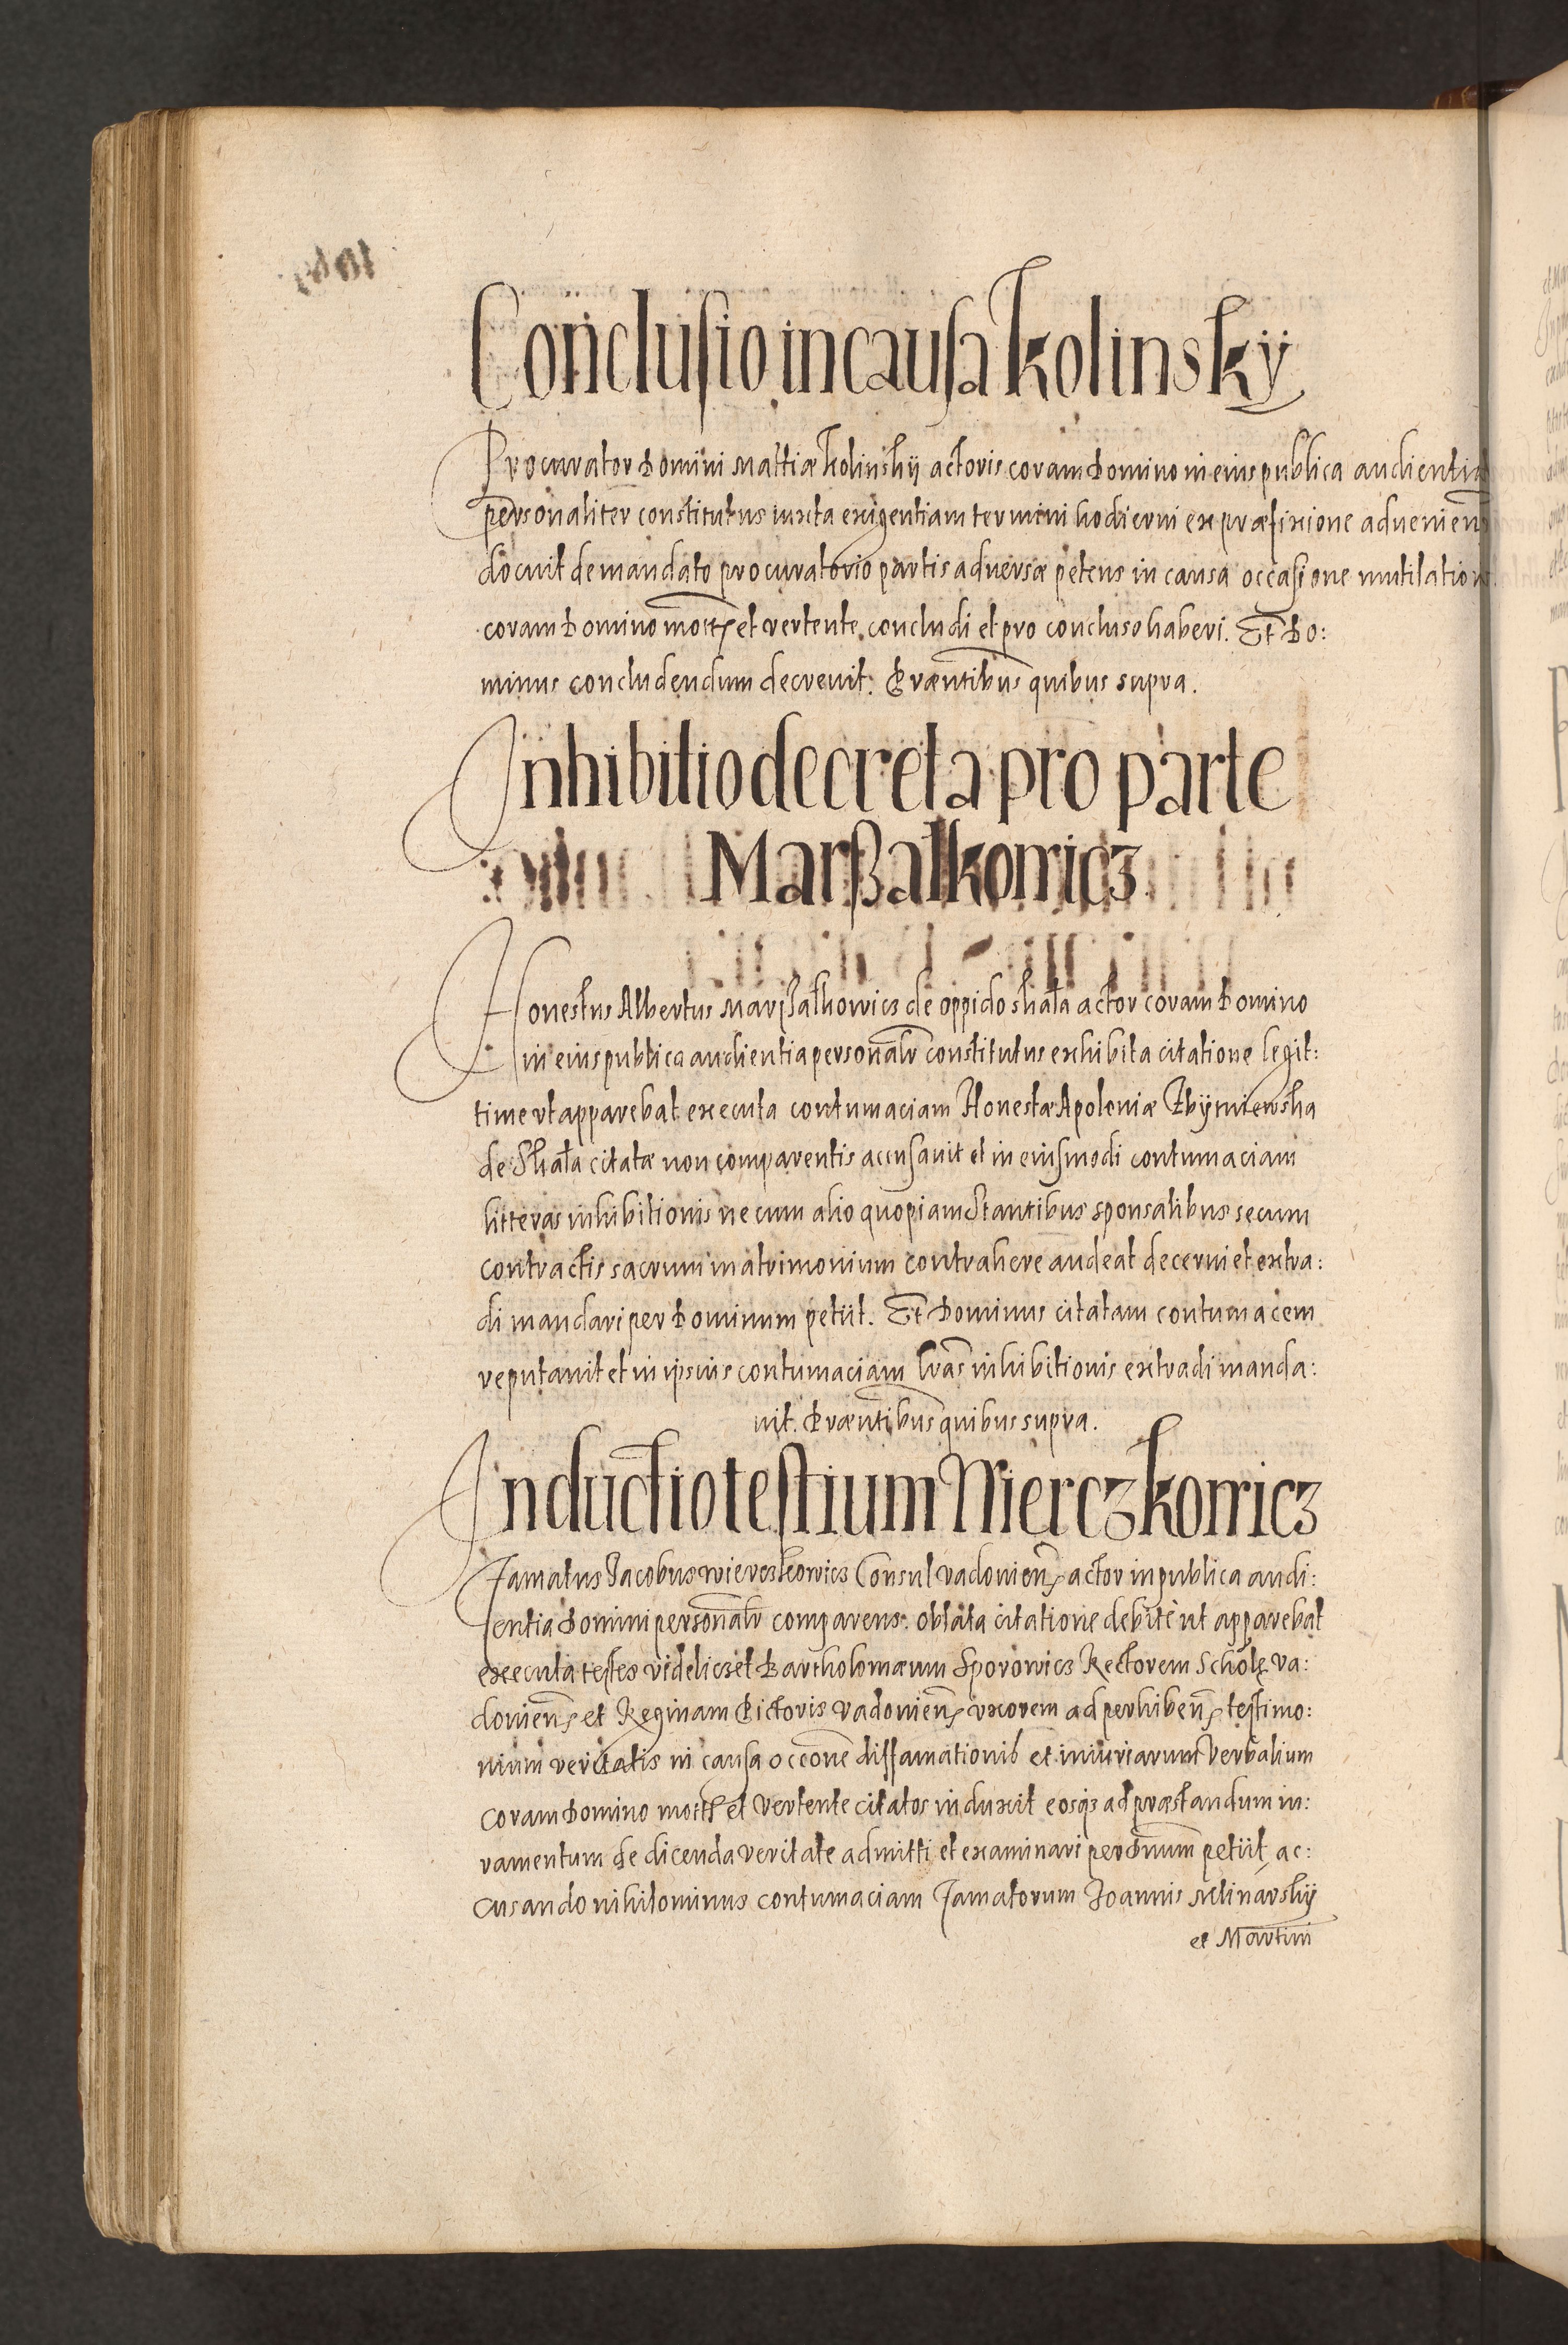 Conclusio in causa Kolinskÿ
Procurator Domini Mattiæ Kolinskÿ actoris coram Domino in eius publica audientia
personaliter constitutus iuxta exigentiam termini hodierni ex præfixione adveniens
docuit de mandato procuratorio partis adversæ petens in causa occasione mutilationis
coram Domino mota et vertente concludi et pro concluso haberi. Et Do:
minus concludendum decrevit. Præntibus quibus supra.
Inhibitio decreta pro parte
Marßałkowicz
Honestus Albertus Marßałkowicz de oppido Skała actor coram Domino
in eius publica audientia personalr constitutus exhibita citatione legit:
time vt apparebat executa contumaciam Honestæ Apoloniæ
de Skała citatæ non comparentis accusavit et in eiusmodi contumaciam
litteras inhibitionis ne cum alio quopiam stantibus sponsalibus secum
contractis sacrum matrimonium contrahere audeat decerni et extra:
di mandari per Dominum petiit. Et Dominus citatam contumacem
reputavit et in ipsius contumaciam lras inhibitionis extradi manda:
uit. Præntibus quibus supra.
Inductio testium Wierczkowicz
Famatus Jacobus Wierczkowicz Consul Vadonien actor in publica audi:
entia Domini personalr comparens oblata citatione debite ut apparebat
executa testes videliczet Bartholomæum Sporowicz Rectorem Scholę Va:
donien et Reginam Pictoris Vadonien vxorem ad perhiben testimo:
nium veritatis in causa occone diffamationis et iniuriarum verbalium
coram Domino mota et vertente citatos induxit eosq3 ad præstandum iu:
ramentum de dicenda veritate admitti et examinari per Dnum petiit, ac:
cusando nihilominus contumaciam Famatorum Joannis Mlinarskÿ
et Martini